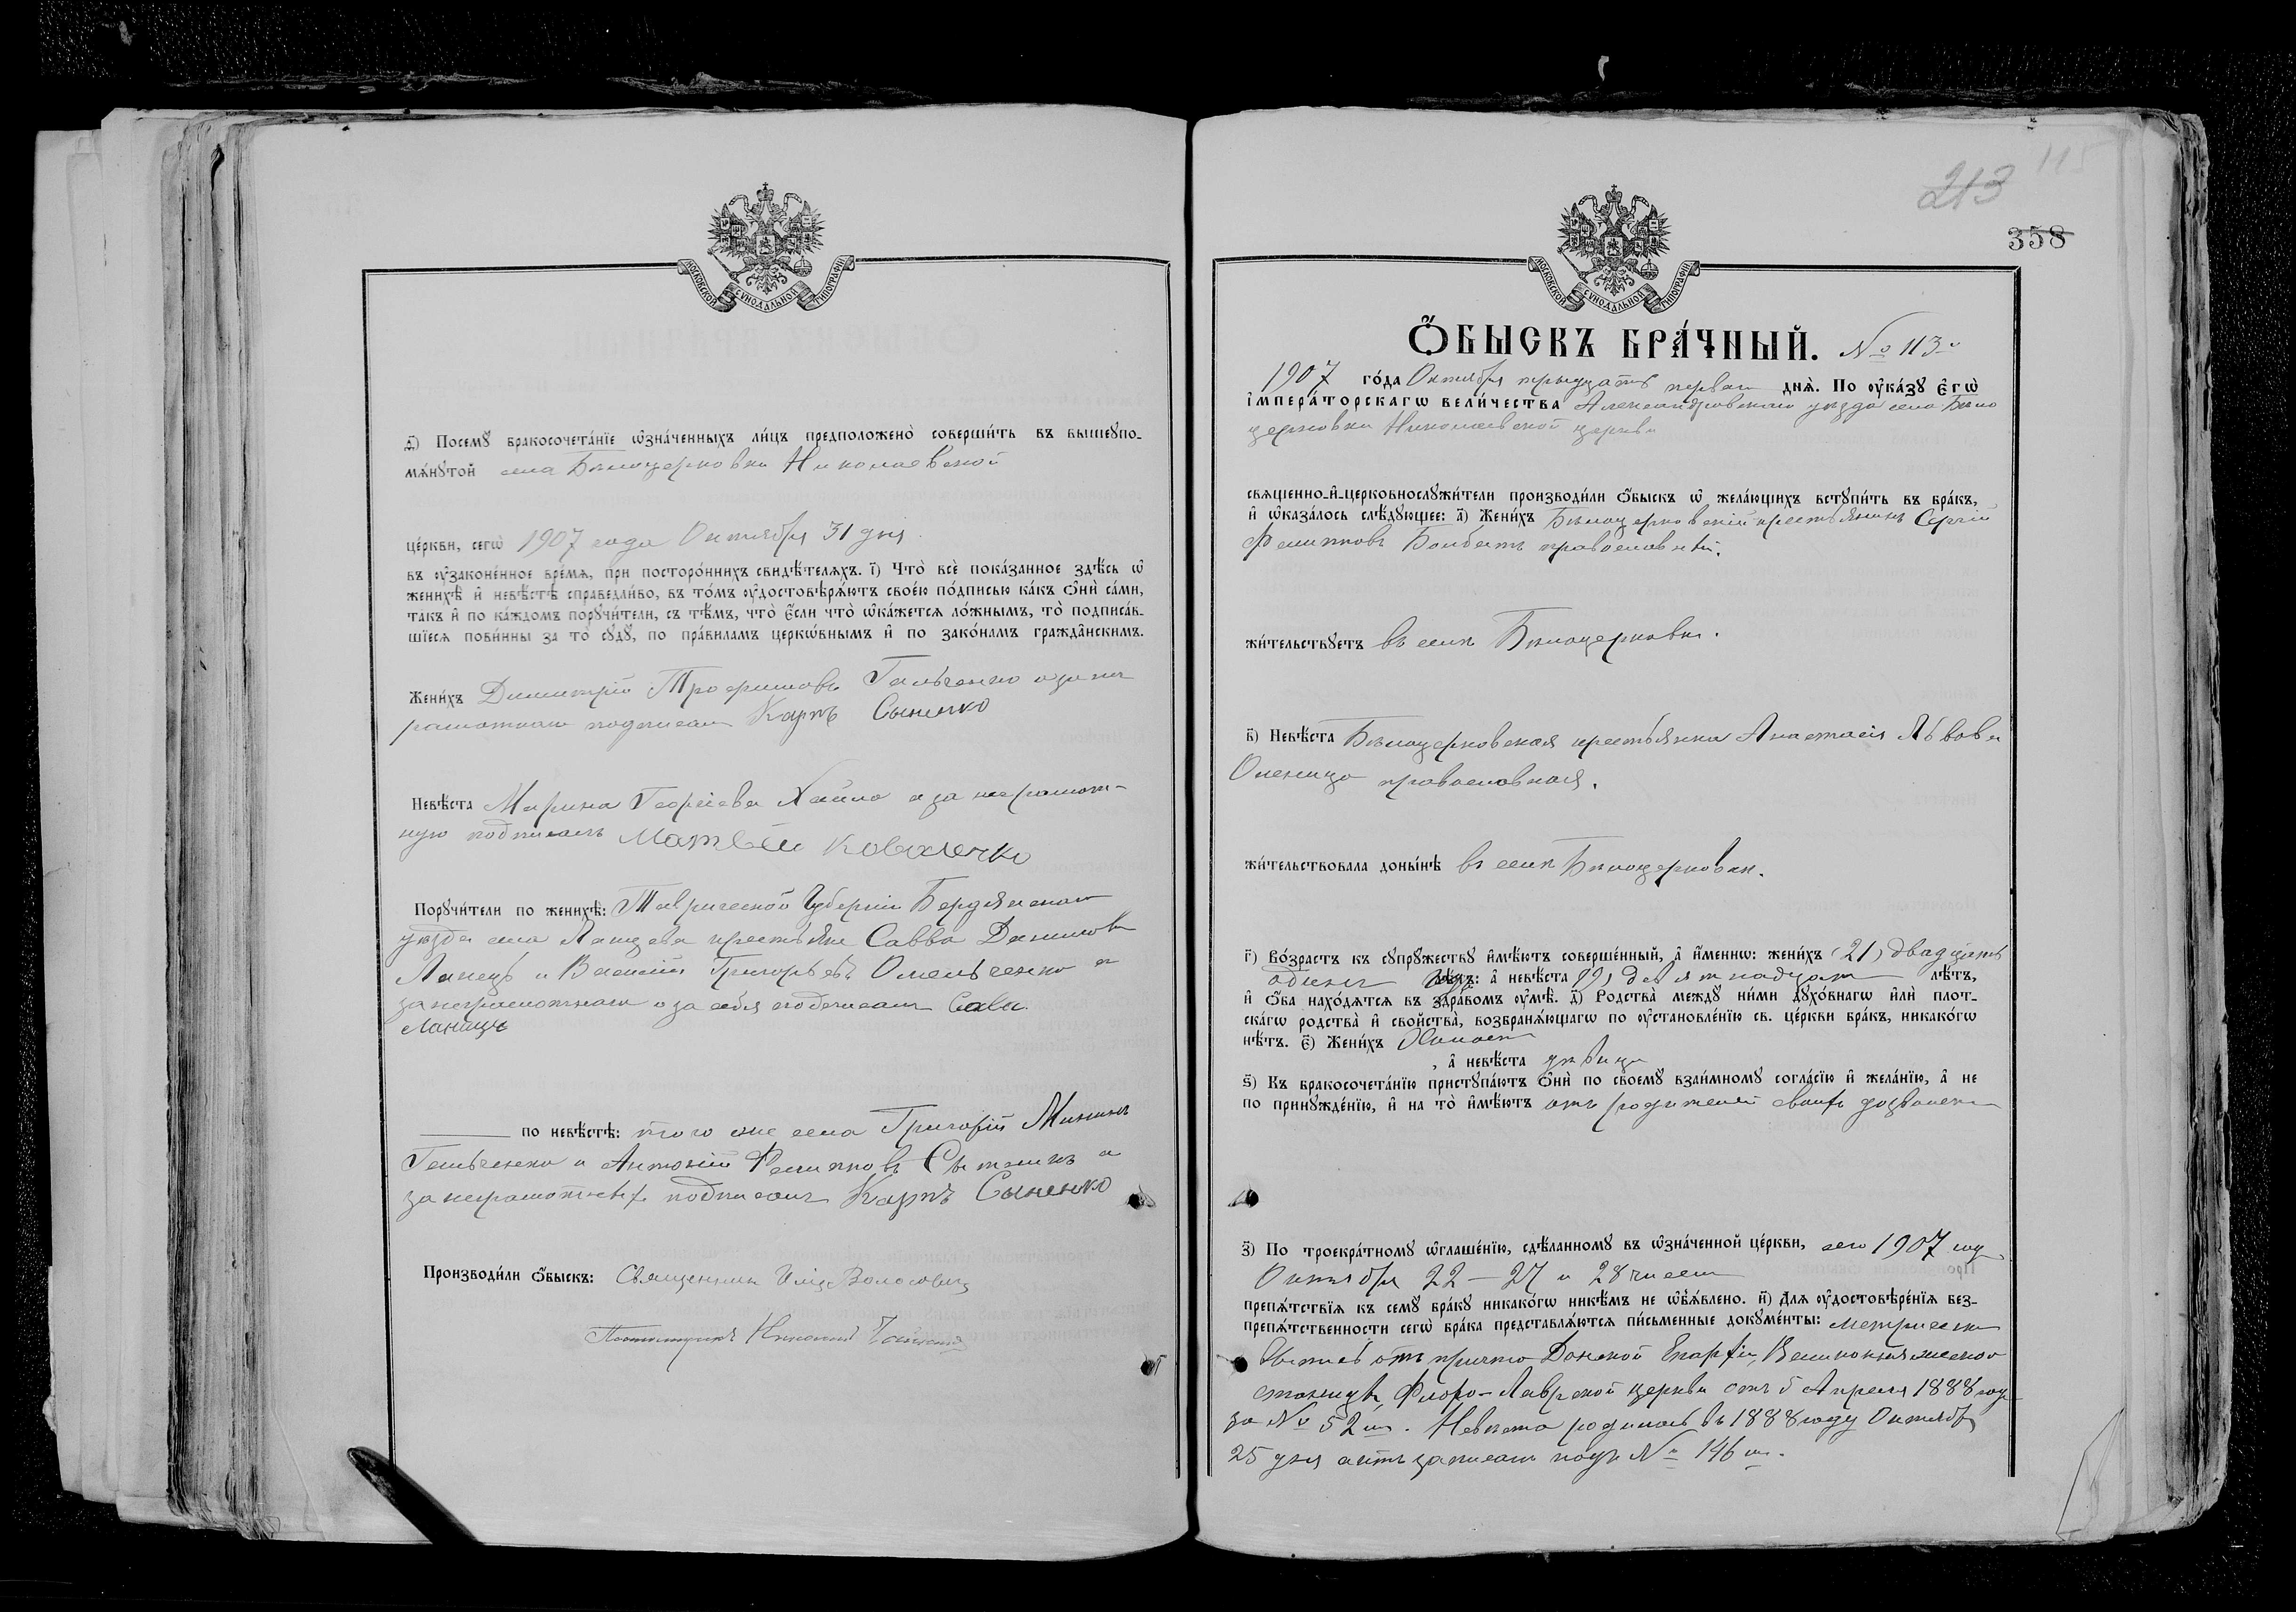 МОСКОВСКОЙ СУНОДАЛЬНОЙ ТИПОГРАФІИ
д҃) Посемꙋ бракосочета́нїе ѡ҆зна́ченныхъ ли́цъ предположено̀ соверши́ть въ вышеꙋпо-
мѧ́нꙋтой села Бѣлоцерковки Николаевской
це́ркви, сегѡ̀ 1907 года Октября 31 дня
въ ᲂу҆законе́нное вре́мѧ, при посторо́ннихъ свидѣ́телѧхъ. і҃) Что̀ всѐ пока́занное здѣ́сь ѡ҆
женихѣ̀ и҆ невѣ́стѣ справедли́во, въ то́мъ ᲂу҆достовѣрѧ́ютъ свое́ю по́дписью ка́къ ѻ҆нѝ са́ми,
та́къ и҆ по ка́ждомъ порꙋчи́тели, съ тѣ́мъ, что̀ є҆́сли что̀ ѡ҆ка́жетсѧ ло́жнымъ, то̀ подписа́в-
шїесѧ пови́нны за то̀ сꙋдꙋ̀, по пра́виламъ церко́внымъ и҆ по зако́намъ гражда́нскимъ.
Жени́хъ Димитрій Трофимовъ Гальченко а за не
грамотнаго подписалъ Карпъ Сыненко
Невѣ́ста Марина Георгіева Хайло а за неграмот-
ную подписалъ Матвѣй Коваленко
Порꙋчи́тели по женихѣ̀: Таврической Губерніи Бердянскаго
уѣзда села крестьяне Савва Даниловъ
Ланецъ и Василій Григорьевъ Омельченко а
за неграмотнаго и за себя подписалъ Сава
Ланець
по невѣ́стѣ: того же села Григорій Мининъ
Гальченко и Антоній Филипповъ Сытникъ а
за неграмотныхъ подписалъ Карпъ Сыненко
Производи́ли ѻ҆́быскъ: Священникъ Волосовичъ
Николай
213
115
358
МОСКОВСКОЙ СУНОДАЛЬНОЙ ТИПОГРАФІИ
Ѻ҆́БЫСКЪ БРА́ЧНЫЙ. № 113й
1907 го́да Октября тридцать перваго днѧ̀. По ᲂу҆ка́зꙋ є҆гѡ̀
і҆мпера́торскагѡ вели́чества Александровскаго уѣзда села Бѣло
церковки Николаевской церкви
свѧще́нно-и҆-церковнослꙋжи́тели производи́ли ѻ҆́быскъ ѡ҆ жела́ющихъ встꙋпи́ть въ бра́къ,
и҆ ѡ҆каза́лось слѣ́дꙋющее: а҃) Жени́хъ Бѣлоцерковскій крестьянинъ Сергій
Филипповъ православный.
жи́тельствꙋетъ въ селѣ Бѣлоцерковкѣ.
в҃) Невѣ́ста Бѣлоцерковская крестьянка Анастасія Львова
православная.
жи́тельствовала доны́нѣ въ селѣ Бѣлоцерковкѣ.
г҃) Во́зрастъ къ сꙋпрꙋ́жествꙋ и҆мѣ́ютъ соверше́нный, а҆ и҆́меннѡ: жени́хъ (21) двадцать
одинъ годъ: а҆ невѣ́ста (19) девятнадцать лѣ́тъ,
и҆ ѻ҆́ба нахо́дѧтсѧ въ здра́вомъ ᲂу҆мѣ̀. д҃) Родства̀ междꙋ ни́ми дꙋхо́внагѡ и҆лѝ плот-
ска́гѡ родства̀ и҆ сво́йства̀, возбранѧ́ющагѡ по ᲂу҆становле́нїю св. це́ркви бра́къ, никако́гѡ
нѣ́тъ. є҃) Жени́хъ Холостъ
, а҆ невѣ́ста дѣвица
ѕ҃) Къ бракосочета́нїю пристꙋпа́ютъ ѻ҆нѝ по своемꙋ̀ взаи́мномꙋ согла́сїю и҆ жела́нїю, а҆ не
по принꙋжде́нїю, и҆ на то̀ и҆мѣ́ютъ отъ родителей своихъ дозволеніе
з҃) По троекра́тномꙋ ѡ҆глаше́нїю, сдѣ́ланномꙋ въ ѡ҆зна́ченной це́ркви, сего 1907 года
Октября 22 – 27 и 28 чиселъ
препѧ́тствїѧ къ семꙋ̀ бра́кꙋ никако́гѡ никѣ́мъ не ѡ҆б̾ѧ́влено. и҃) Длѧ ᲂу҆достовѣре́нїѧ без-
препѧ́тственности сегѡ̀ бра́ка представлѧ́ютсѧ пи́сьменные докꙋме́нты: метрическая
выпись отъ причта Донской Епархіи, Великокняжеской
станицы, Флоро-Лаврской церкви отъ 5 Апрѣля 1888 года
за № 52м. Невѣста родилась въ 1888 году Октября
25 дня актъ записанъ подъ № 146м.